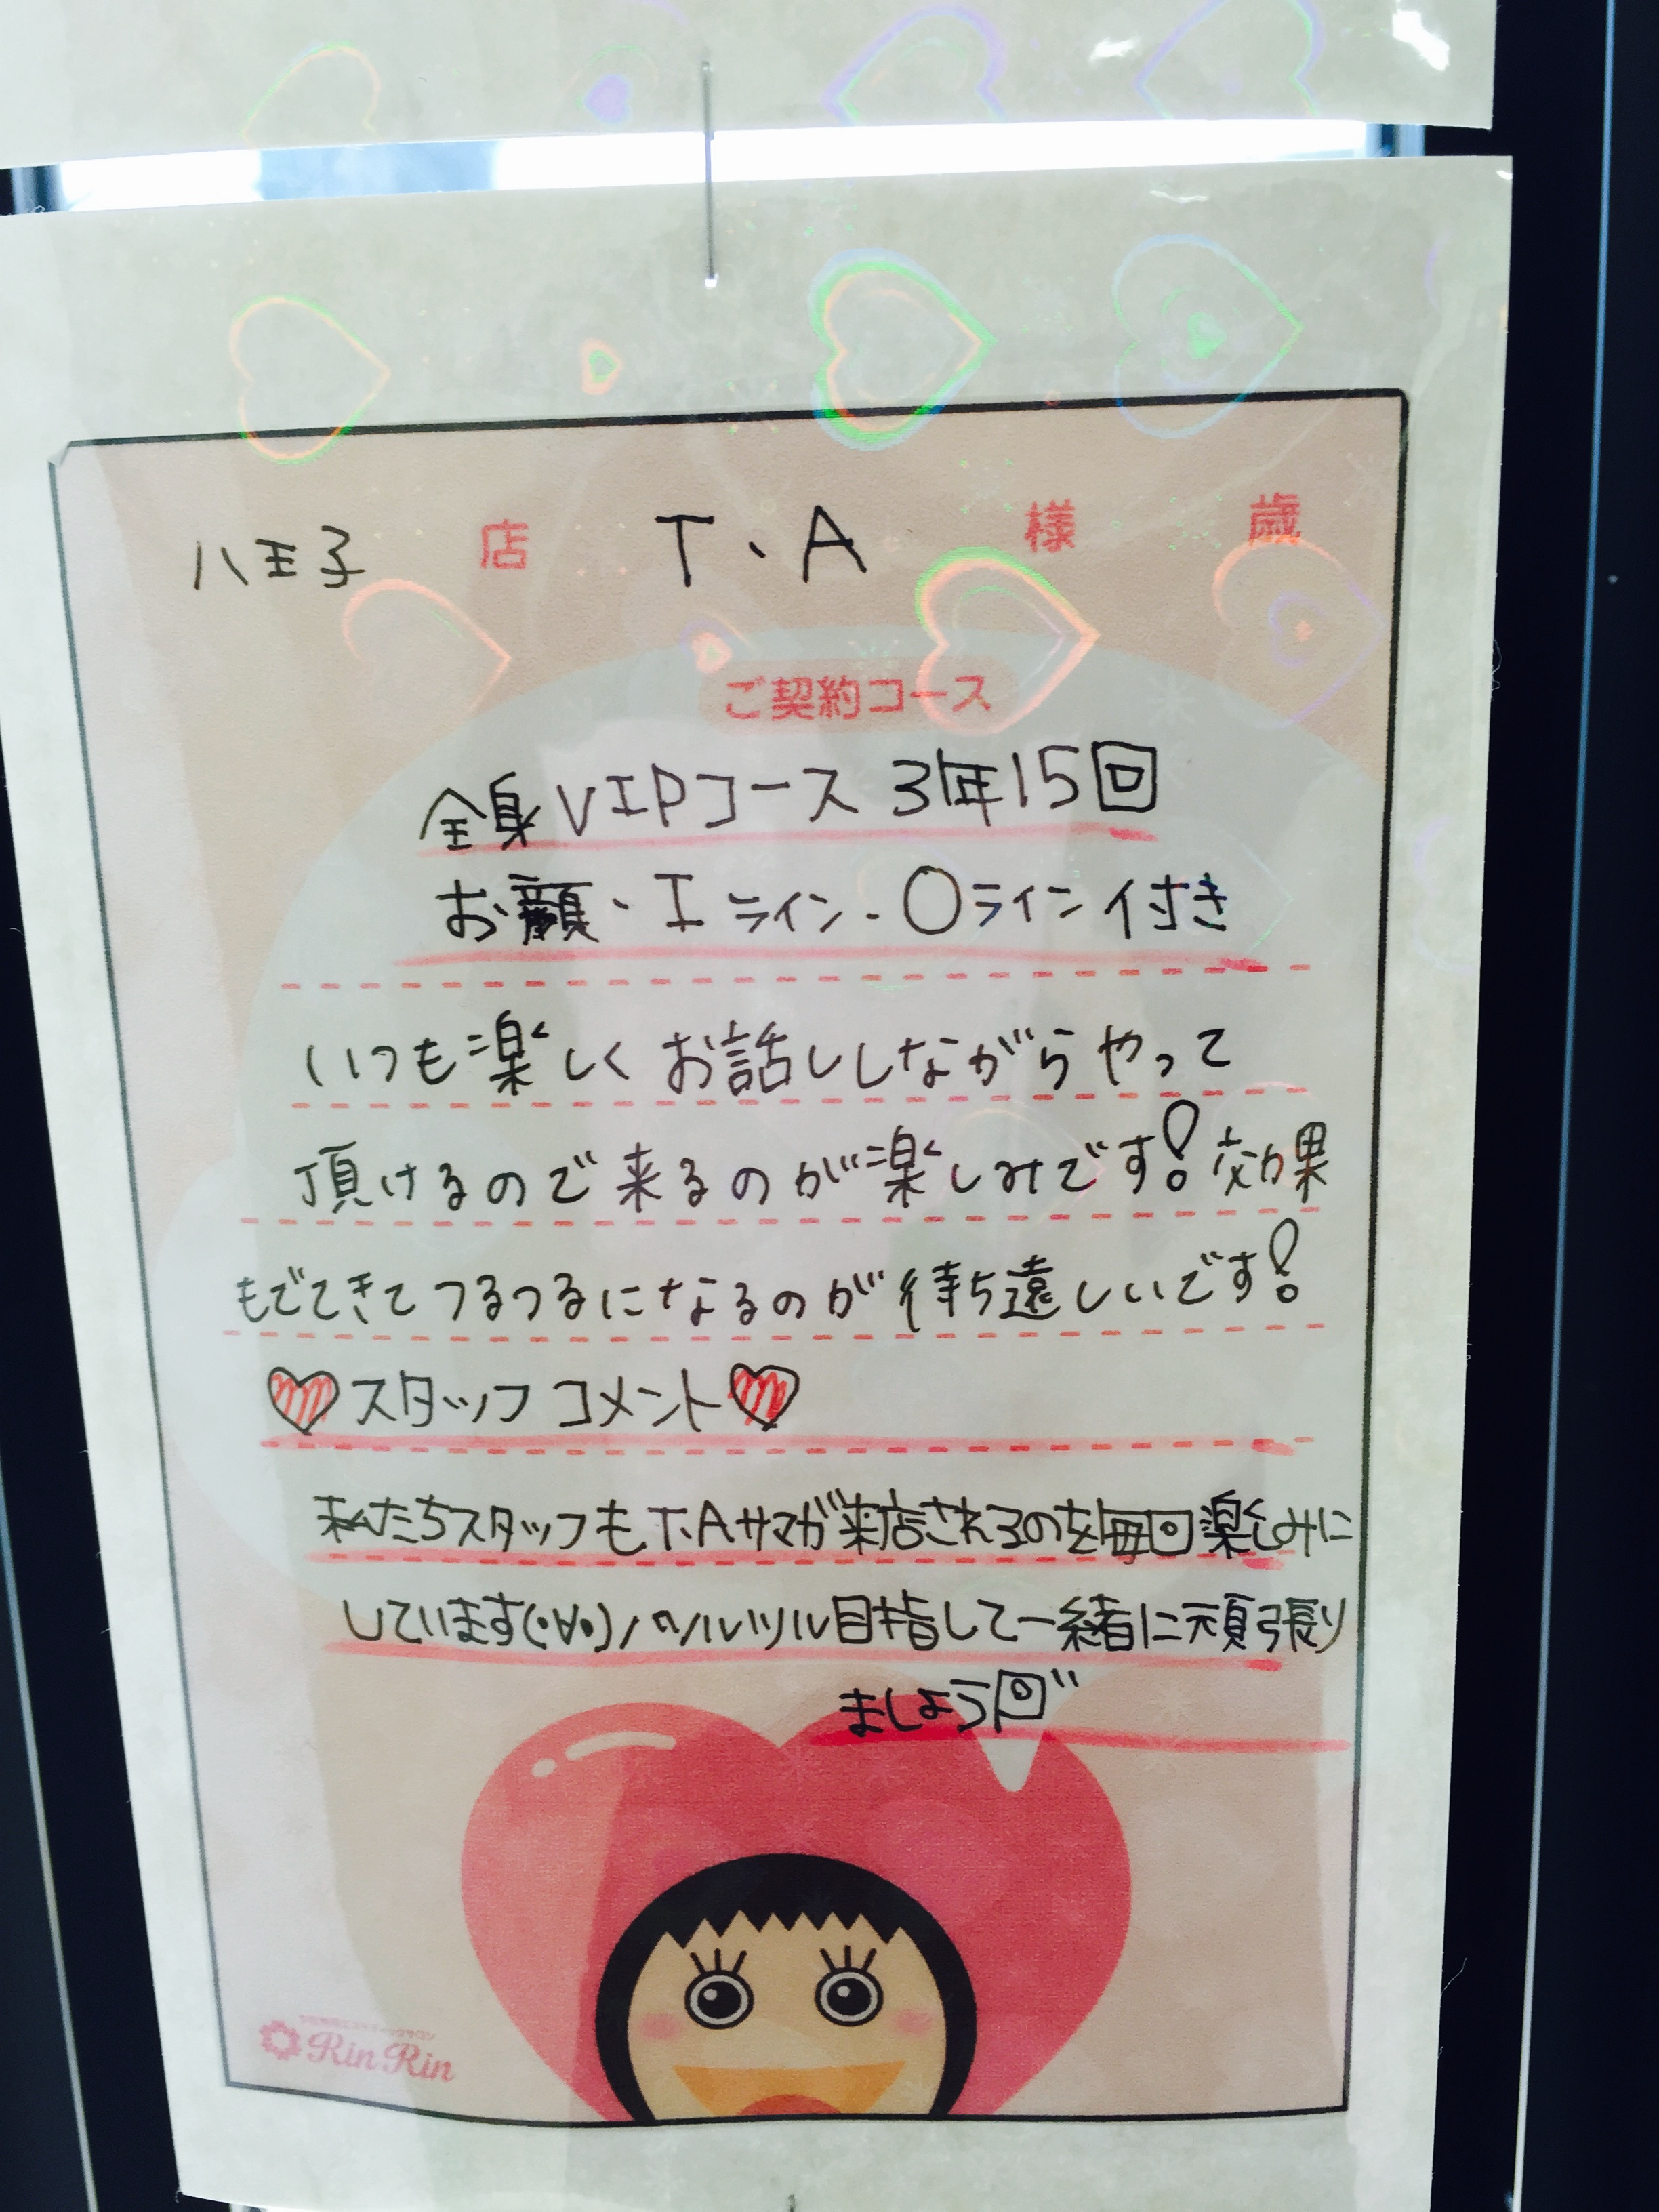 八王子 店 T、A 様 歳
ご契約コース
全身VIPコース 3年15回
お顔、Iライン、Oライン付き
いつも楽しくお話ししながらやって
頂けるので来るのが楽しみです!効果
もでてきてつるつるになるのが待ち遠しいです!
♡スタッフコメント♡
私たちスタッフもT、Aサマが来店されるのを毎回楽しみに
しています(・∀・)ノ"ツルツル目指して一緒に頑張り
ましょう
RinRin